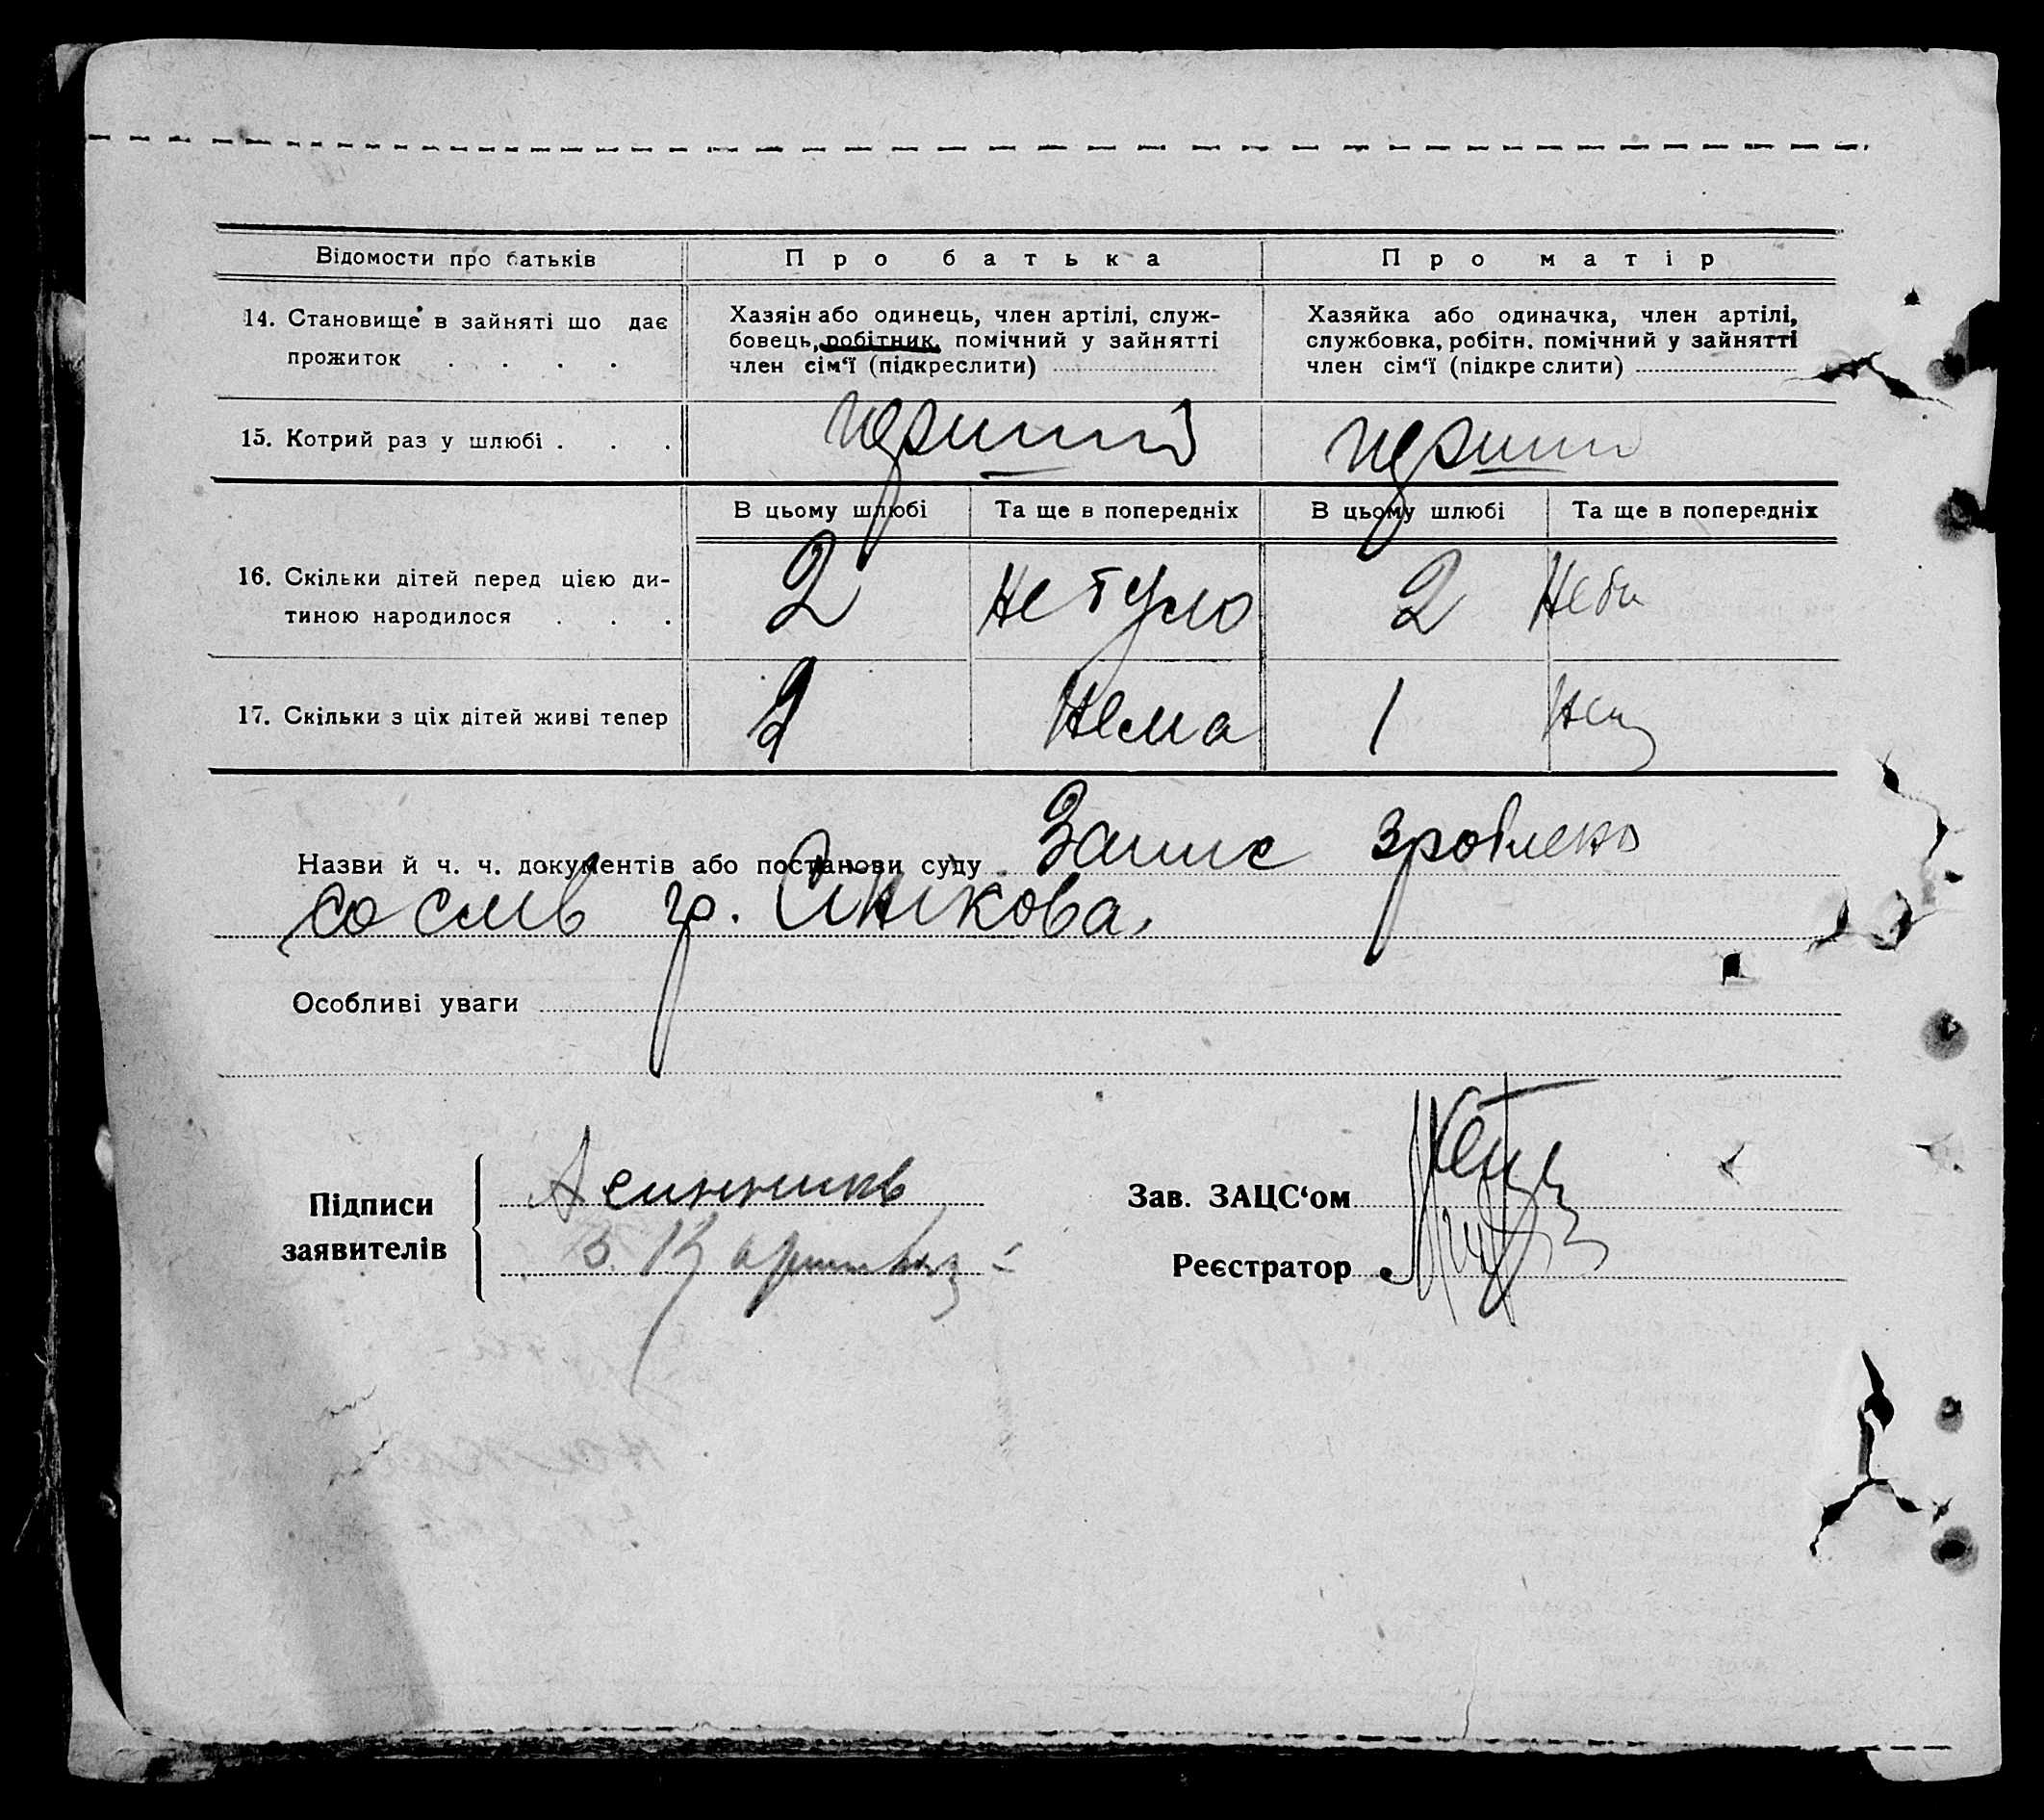 Відомости про батьків
Про батька
Про матір
14. Становище в зайняті що дає
прожиток . . . .
Хазяін або одинець, член артілі, служ-
бовець, робітник, помічний у зайнятті
член сім‘ї (підкреслити)
Хазяйка або одиначка, член артілі,
службовка, робітн. помічний у зайнятті
член сім‘ї (підкре слити)
15. Котрий раз у шлюбі . . .
перший
перший
В цьому шлюбі
Та ще в попередніх
В цьому шлюбі
Та ще в попередніх
16. Скільки дітей перед цією ди-
тиною народилося . . .
2
не було
2
не бу
17. Скільки з ціх дітей живі тепер
нема
1
Назви й ч. ч. документів або постанови суду Запис зроблено
со слів гр.
Особливі уваги
Підписи
заявителів
Зав. ЗАЦС‘ом
Реєстратор